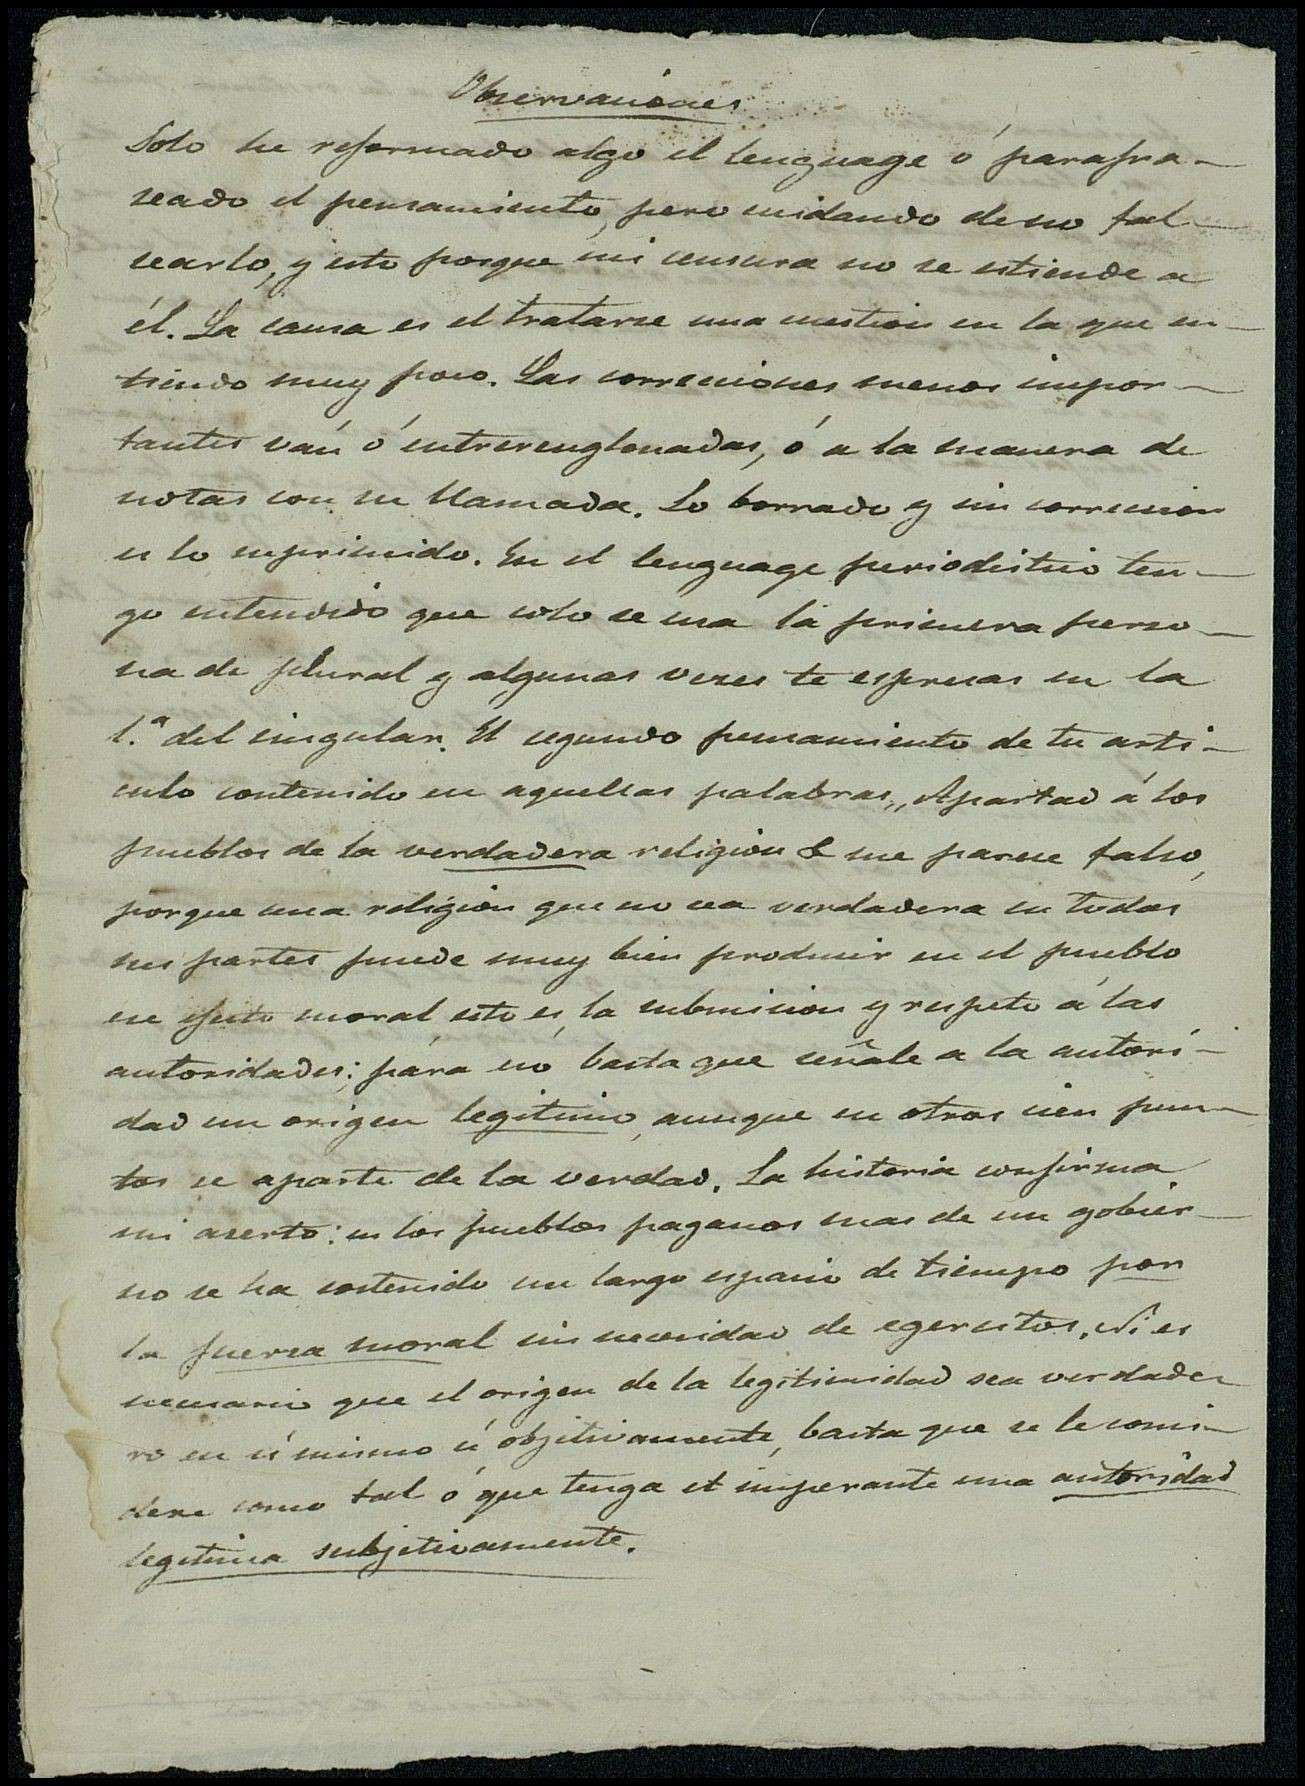 Observaciones
Solo he reformado algo el lenguage ó parafra-
seado el pensamiento, pero cuidando de no fal-
searlo, y esto porque mi censura no se estiende a
él. La causa es el tratarse una cuestion en la que en-
tiendo muy poco. Las correcciones menos impor-
tantes ván ó entrerenglonadas, ó a la manera de
notas con su llamada. Lo borrado y sin correccion
es lo suprimido. En el lenguage periodistico ten-
go entendido que solo se usa la primera perso-
na de plural y algunas veces te espresas en la
1.ª del singular. El segundo pensamiento de tu arti-
culo contenido en aquellas palabras „Apartad á los
pueblos de la verdadera religion & me parece falso,
porque una religion que no sea verdadera en todas
sus partes puede muy bien producir en el pueblo
ese efecto moral esto es, la submision y respeto á las
autoridades; pára eso basta que señale a la autori-
dad un origen legitimo, aunque en otros cien pun-
tos se aparte de la verdad. La historia confirma
mi aserto: en los pueblos paganos mas de un gobier-
no se ha sostenido un largo espacio de tiempo por
la fuerza moral sin necesidad de egercitos. Ni es
necesario que el origen de la legitimidad sea verdade-
ro en sí mismo ú objetivamente, basta que se le consi-
dere como tal ó que tenga el imperante una autoridad
legitima subjetivamente.